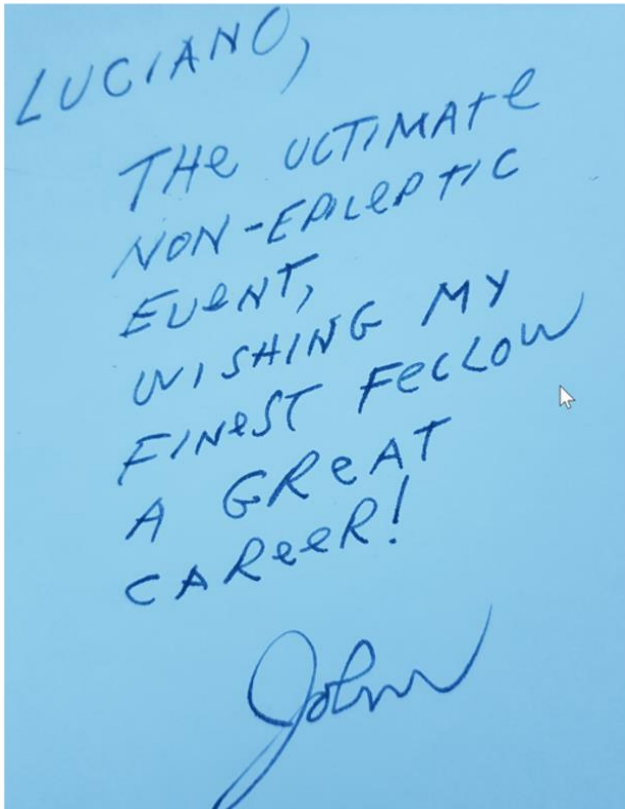 LUCIANO,
THe ULTIMATe
NON-EPILePTIC
EVeNT,
WISHING MY
FINeST FeLLOW
A GReAT
CAReeR!
John